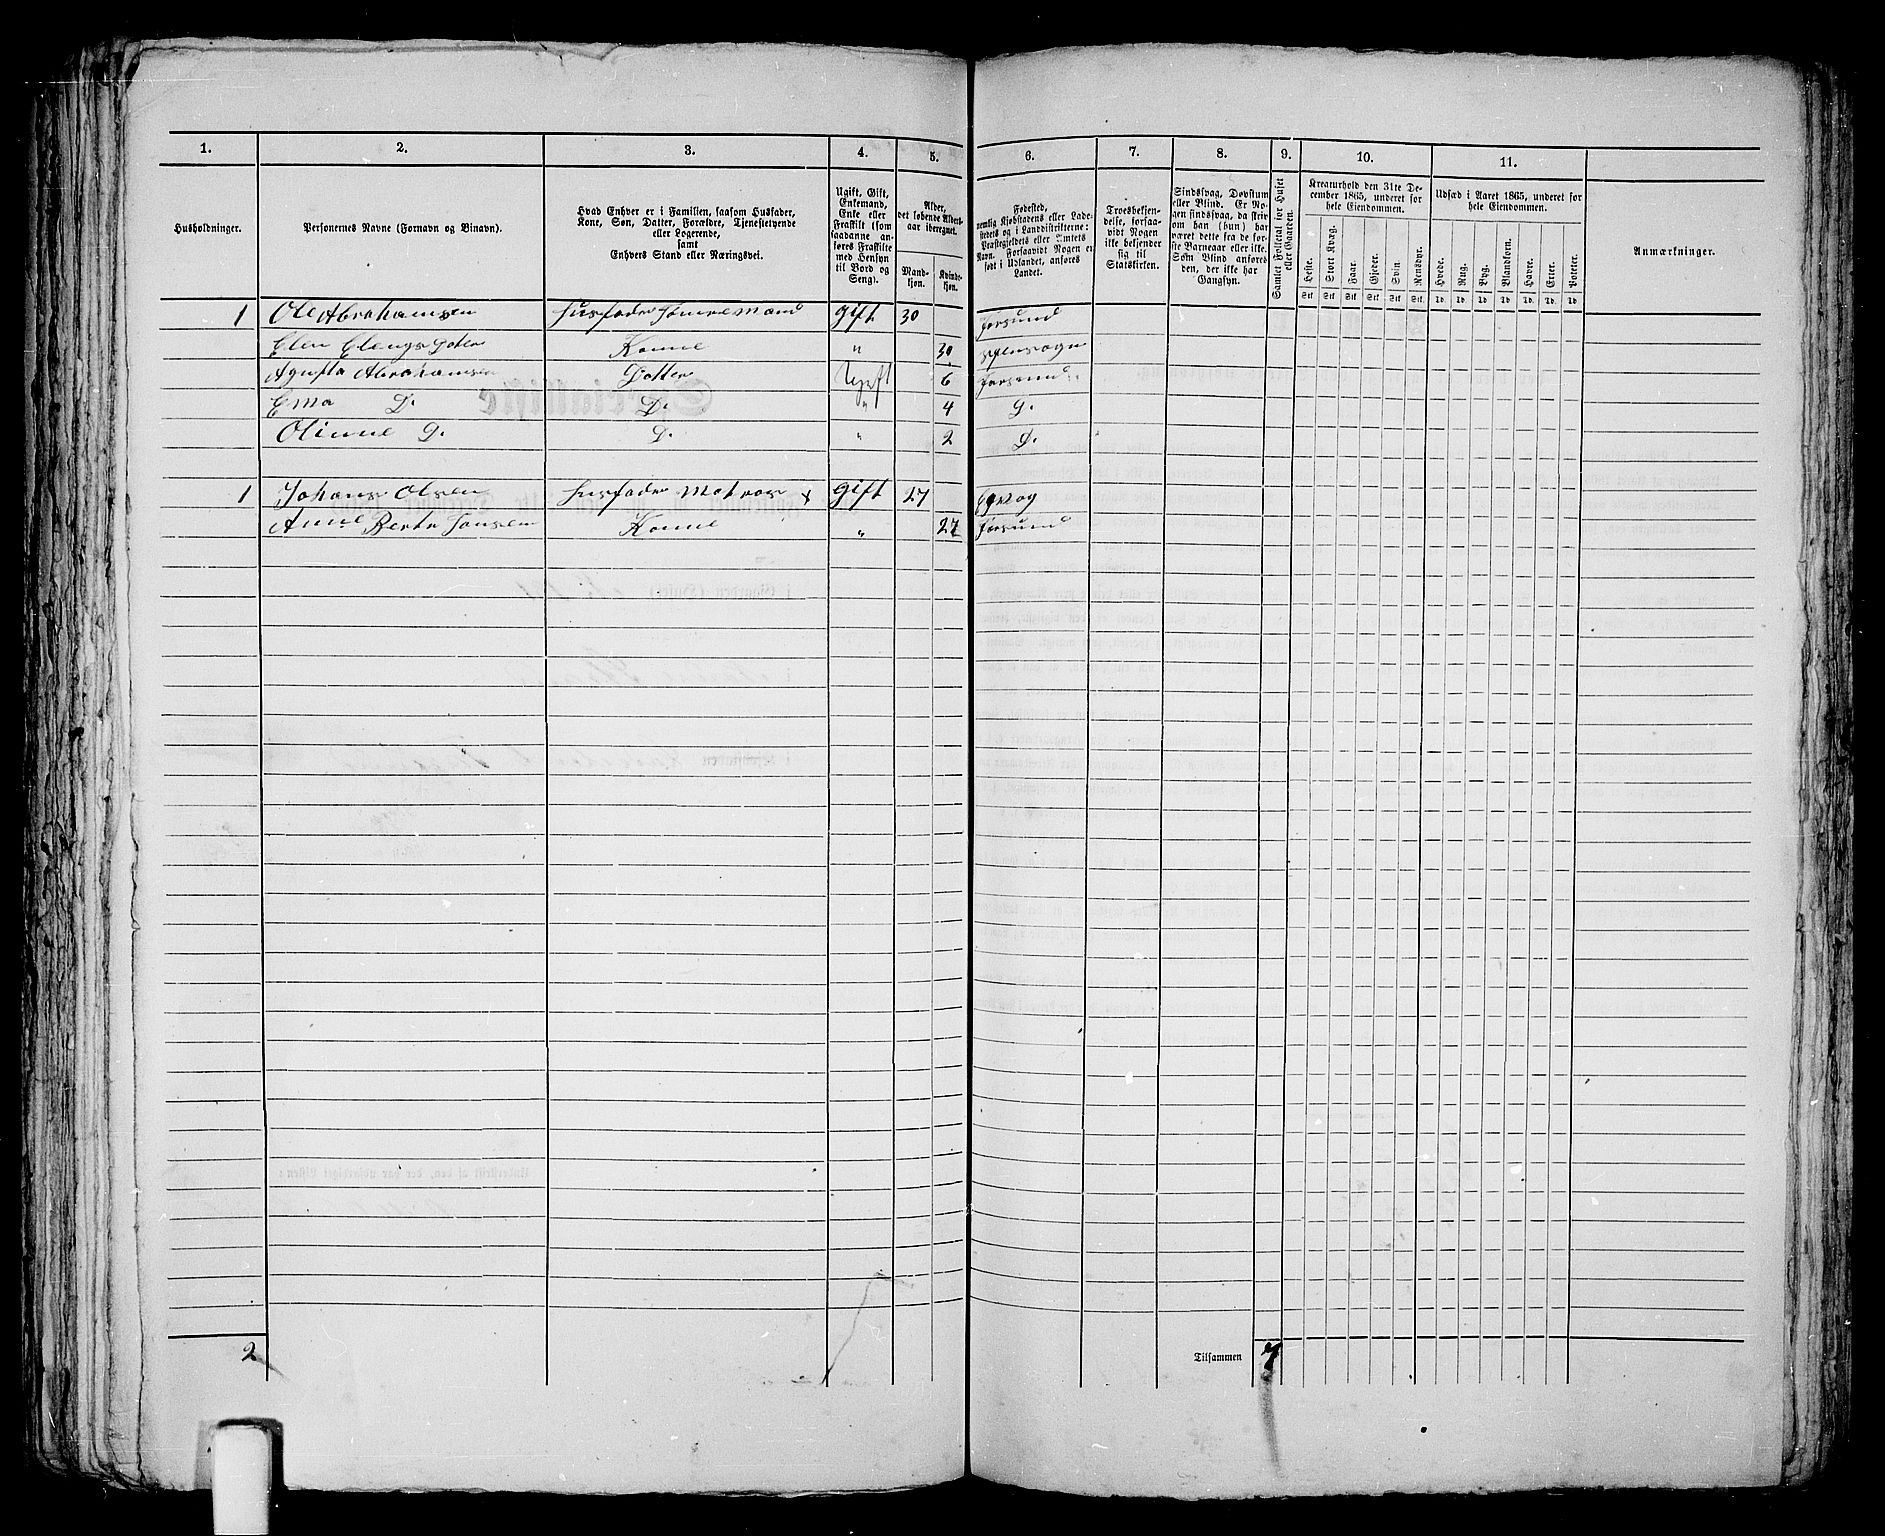 1. 2. 3. 4. 5. 6. 7. 8. 9. 10. 11.
Husholdninger.
Personernes Navne (Fornavn og Binavn).
Hvad Enhver er i Familien, saasom Husfader,
Kone, Søn, Datter, Forældre, Tjenestetyende
eller Logerende,
samt
Enhvers Stand eller Næringsvei.
Ugift, Gift,
Enkemand,
Enke eller
Fraskilt (som
saadanne an-
føres Fraskilte
med Hensyn
til Bord og
Seng).
Alder,
det løbende Alders-
aar iberegnet.
Mand-
kjøn.
Kvinde-
kjøn.
Fødested,
nemlig Kjøbstadens eller Lade-
stedets og i Landdistrikterne:
Præstegjeldets eller Amtets
Navn. Forsaavidt Nogen er
født i Udlandet, anføres
Landet.
Troesbekjen-
delse, forsaa-
vidt Nogen
ikke bekjender
sig til
Statskirken.
Sindssvag, Døvstum
eller Blind. Er No-
gen sindssvag, da skriv
om han (hun) har
været dette fra de før-
ste Barneaar eller ikke.
Som Blind anføres
den, der ikke har
Gangsyn.
Samlet Folketal for Huset
eller Gaarden.
Kreaturhold den 31te De-
cember 1865, underet for
hele Eiendommen.
Heste. Stort Kvæg. Faar. Gjeder. Svin. Rensdyr.
Stk Stk Stk Stk Stk Stk
Udsæd i Aaret 1865, underet for
hele Eiendommen.
Hvede. Rug. Byg. Blandkorn. Havre. Erter. Poteter.
Td. Td. Td. Td. Td. Td. Td
Anmærkninger.
1 Ole Abrahamsen Husfader Gift 30 Farsund
Elen Konne " 30
Agusta Abrahamsen Dotter Ugift 6 Farsund
Ema D. D. " 4 D.
Olinne D. D. " 2 D.
1 Johans Olsen Husfader Matros Gift 27
Anne Berte Jonsen Konne " 27 Farsund
2 Tilsammen 7